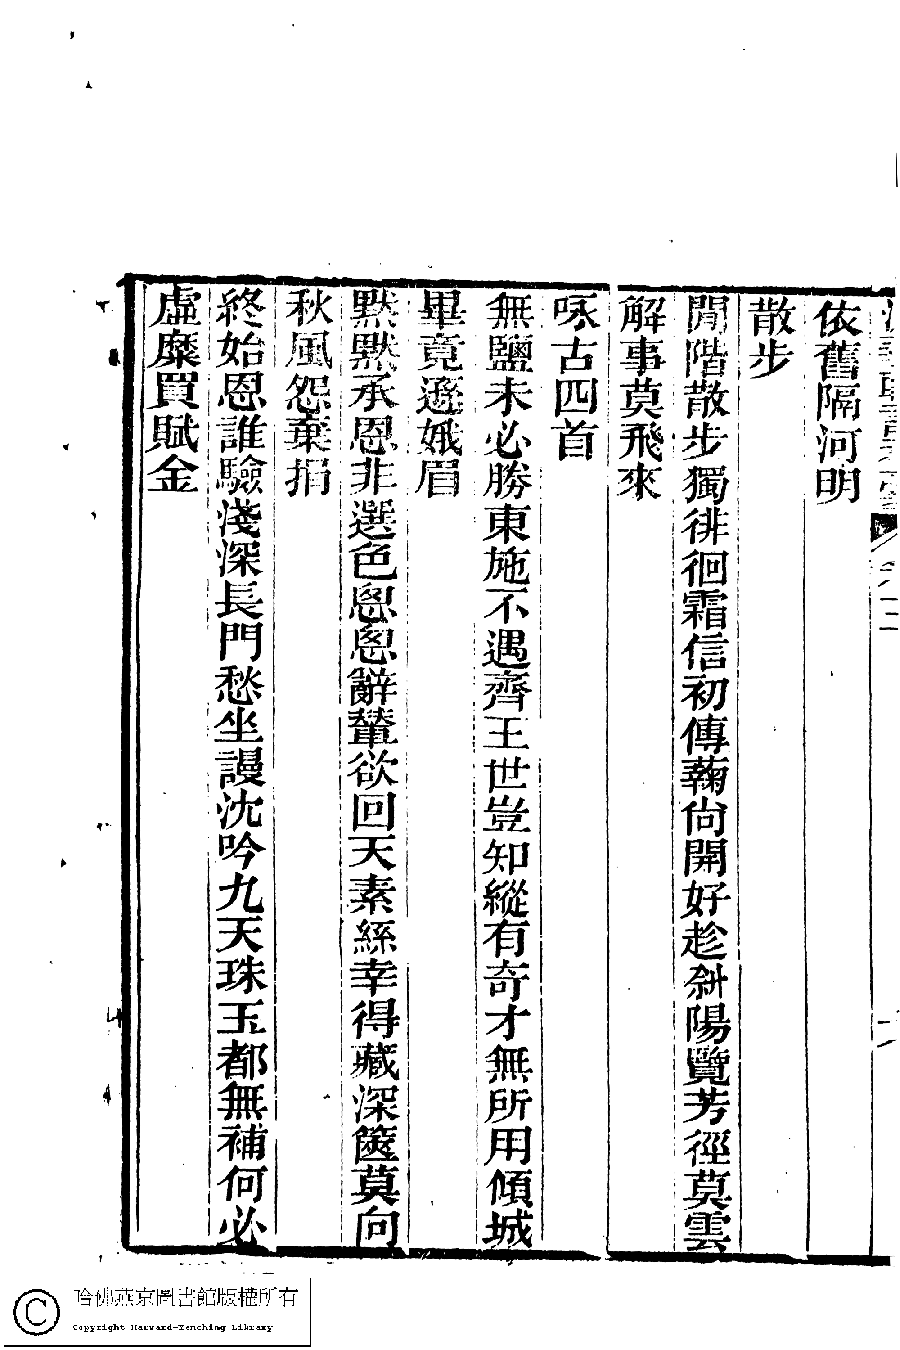 依舊隔河明
散步
閒階散步獨徘徊霜信初傳蘜尙開好趁斜陽覽芳徑莫雲
解事莫飛來
咏古四首
無鹽未必勝東施不遇齊王世豈知縱有奇才無所用傾城
畢竟遜娥眉
默默承恩非選色悤悤辭輦欲回天素絲幸得藏深篋莫向
秋風怨棄捐
終始恩誰驗淺深長門愁坐謾沈吟九天珠玉都無補何必
虛糜買賦金
哈佛燕京圖書館版權所有
Copyright Harvard-Yenching Library